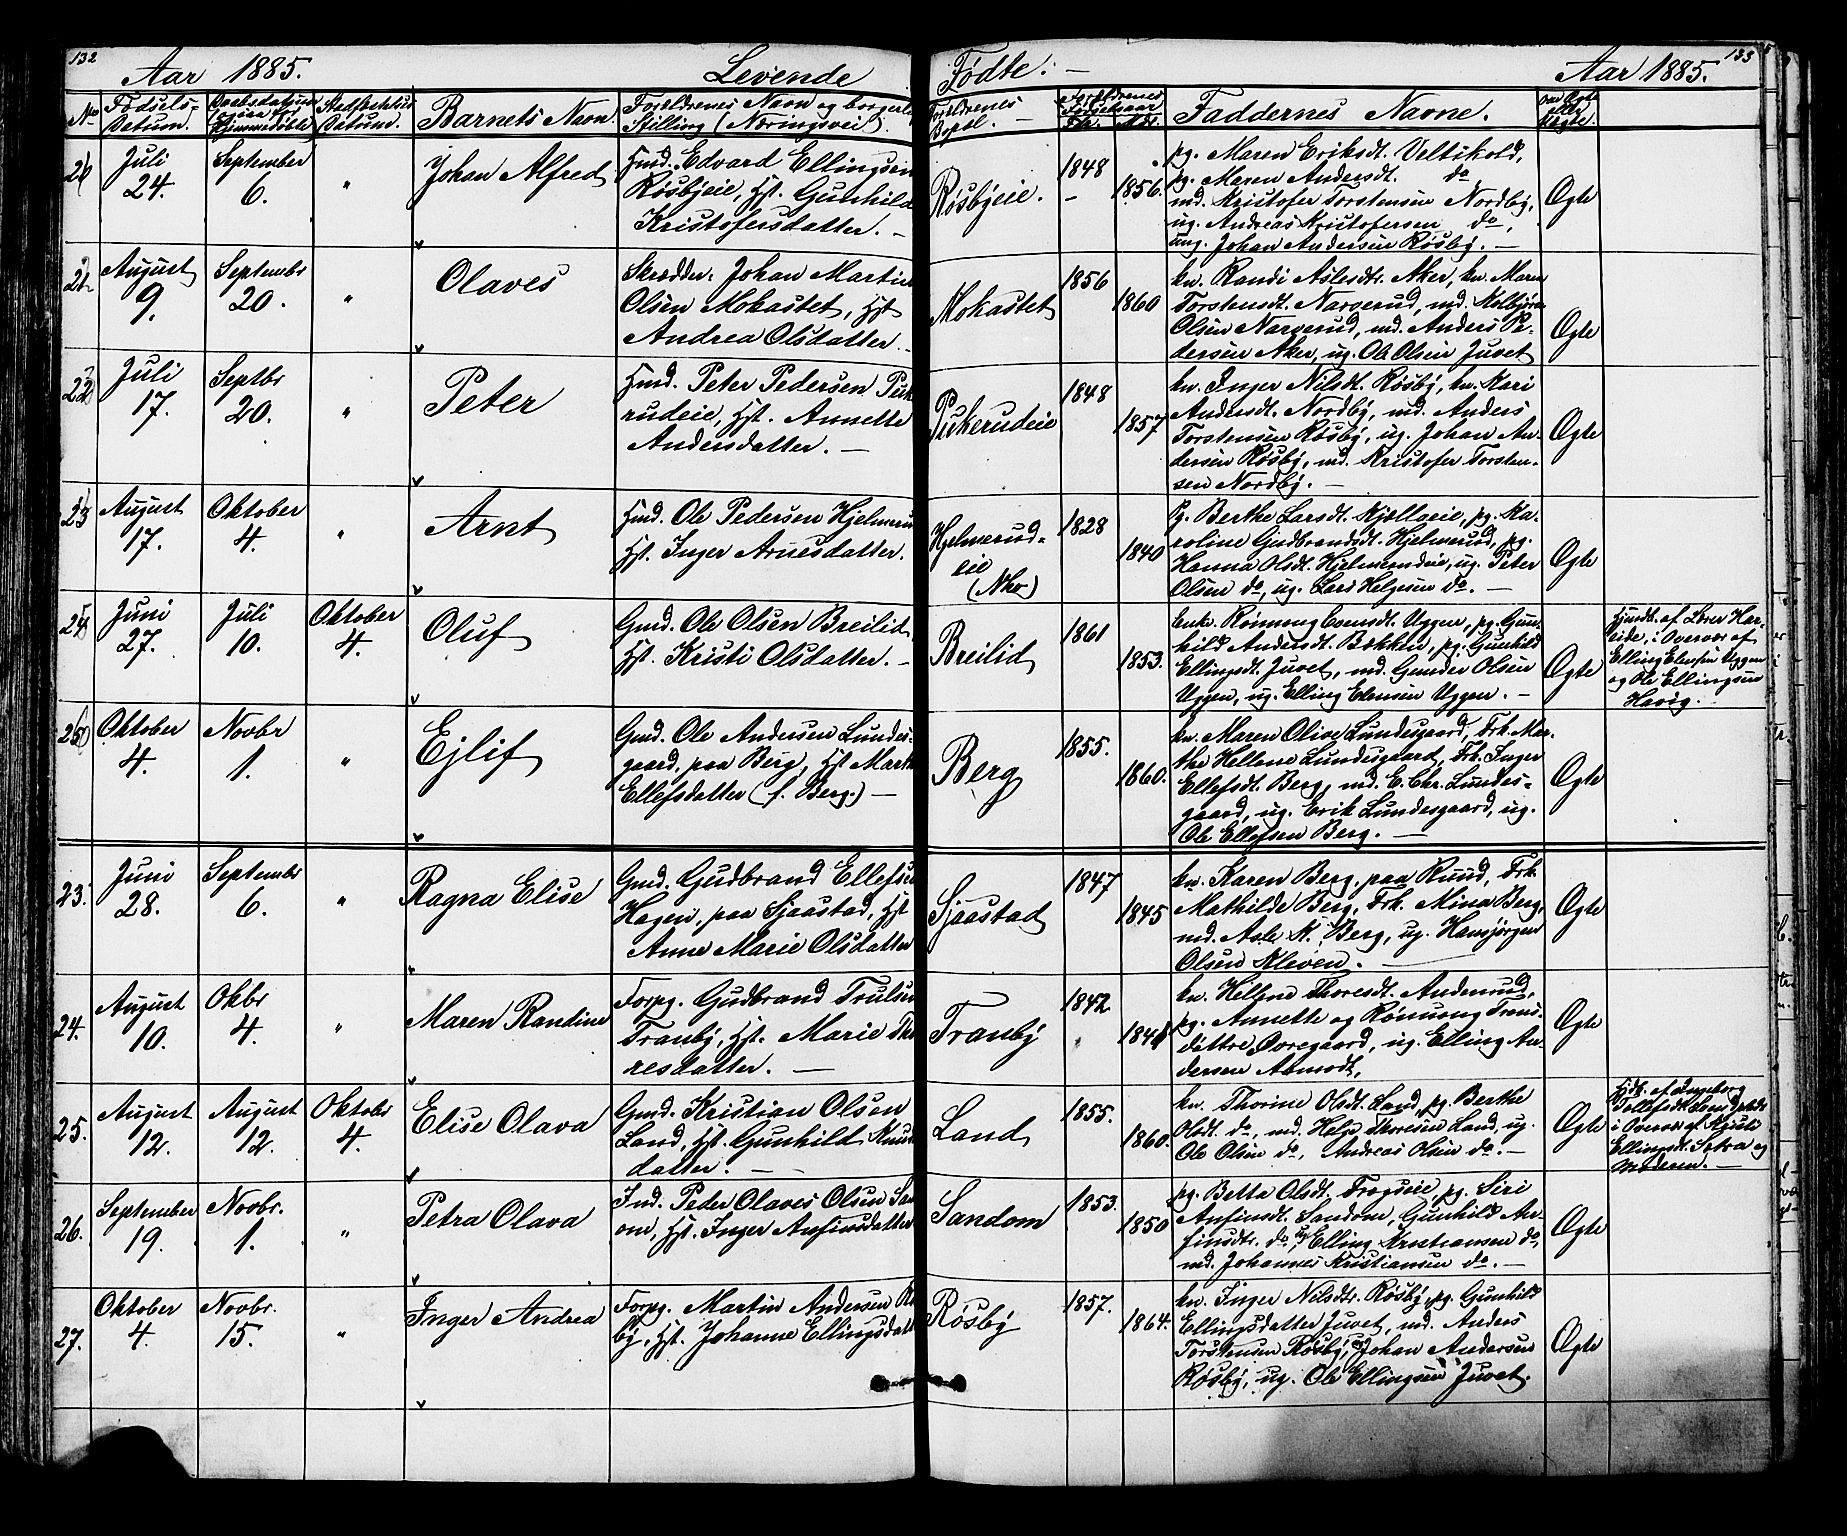 132
Aar 1885. Levende Fødte. Aar 1885. 133
No Fødsels-Datum. Daabsdatum Hjemmedøbte Stadfæstelses Datum. Barnets Navn Forældrenes Navn og borgerl. Stilling (Næringsvei). Forældrenes Bopæl. Forældrenes Fødselsaar Fdr. Mdr. Faddernes Navne. Ægte
Juli 24. September 6. " Johan Alfred
Hmd. Edvard Ellingsen
Røsbyeie, Hst. Gunhild
Kristofersdatter.
Røsbyeie. 1848 1856.
pg. Maren Eriksdt. Veltshold,
pg. Maren Andersdt. do
md. Kristofer Torstensen Nordby,
ug. Andreas Kristofersen do,
ung. Johan Andersen Røsby.
Ægte
21 August 9. Septembr 20. " Olaves
Skrædder. Johan Martin
Olsen Mokastet, Hst
Andrea Olsdatter.
Mokastet 1856 1860
kn. Randi Aslesdtr. Aker, kn. Maren
Torstensdt. Narverud, md. Kolbjørn
Olsen Narverud, md. Anders Pe-
dersen Aker, ug. Ole Olsen Juvet
Ægte
22 Juli 17. Septbr 20. " Peter
Hmd. Peter Pedersen Puk
rudeie, Hst. Annette
Andersdatter.
Pukerudeie 1848 1857
kn. Inger Nilsdt. Røsby, kn. Kari
Andersdt. Nordby, md. Anders
Torstensen Røsby, ug. Johan An-
dersen Røsby, md. Kristofer Torsten-
sen Nordby.
Ægte
23 August 17. Oktober 4. " Arnt
Hmd. Ole Pedersen Hjelmeru
Hst. Inger Arnesdatter.
Hjelmerud-
eie
(Nho)
1828 1840
Pg. Berthe Larsdt. Kjølleeie, pg. Ka-
roline Gudbrandsdt. Hjelmerud, pg.
Hanna Olsdt. Hjelmerudeie, ug. Peter
Olsen do, ug. Lars Helgesen do.
Ægte
24 Juni 27. Juli 10. Oktober 4. Oluf
Gmd. Ole Olsen Breilid
Hst. Kristi Olsdatter.
Breilid 1861 1853.
Enke. Rønnoug Evensdt. Uggen, pg. Gun-
hild Andersdt. Bakken, pg. Gunhild
Ellingsdt. Juvet, md. Gunder Olsen
Uggen, ug. Elling Elensen Uggen.
Ægte
Hjmdt. af Lærer Har-
eide, i Overvær af
Elling Elensen Uggen
og Ole Ellingsen
Havig.
25 Oktober 4. Novbr 1. " Ejlif
Gmd. Ole Andersen Lundes-
gaard, paa Berg, Hst Marth
Ellefsdatter (f. Berg.)
Berg 1855. 1860.
kn. Maren Olive Lundesgaard, Frk. Mar-
the Hellene Lundesgaard, Frk. Inger
Ellefsdt. Berg, md. E. Chr. Lundes-
gaard, ug. Erik Lundesgaard, ug.
Ole Ellefsen Berg.
Ægte
23. Juni 28. Septembr 6. " Ragna Elise
Gmd. Gudbrand Ellefsen
Hagen, paa Sjaastad, Hst
Anne Marie Olsdatter
Sjaastad 1847 1845
kn. Karen Berg, paa Ruud, Frk.
Mathilde Berg, Frk. Mina Berg,
md. Asle K. Berg, ug. Hansjørgen
Olsen Kleven.
Ægte
24. August 10. Oktbr 4. " Maren Randine
Forpg. Gudbrand Trulsen
Tranby, Hst. Marie Tho
resdatter.
Tranby 1842 1846
kn. Hellene Thoresdt. Anderud,
pg. Annette og Rønnoug Trons-
døttre Ovregaard, ug. Elling An-
dersen Aamodt,
Ægte
25. August 12. August 12. Oktobr 4. Elise Olava
Gmd. Kristian Olsen
Land, Hst. Gunhild Knuds
datter.
Land 1855. 1860.
kn. Thorine Olsdt. Land, pg. Berthe
Olsdt. do, md. Helge Thoresen Land, ug.
Ole Olsen do, Andreas Olsen do.
Ægte
Hjdt. af Ingeborg
Tollefsdt.
i Overvær af Kristi
Ellingsdt. Sætra og
Moderen.
26. September 19. Novbr. 1. " Petra Olava
Ind. Peder Olaves Olsen San
om, Hst. Inger Anfinsdatter
Sandom 1853. 1850
pg. Betta Olsdt. Frogseie, pg. Siri
Anfinsdt. Sandom, Gunhild An-
finsdtr. do, ug. Elling Kristiansen do,
md. Johannes Kristiansen do.
Ægte
27. Oktober 4. Novbr. 15. " Inger Andrea
Forpg. Martin Andersen Rø
by, Hst. Johanne Ellingsdatt
Røsby 1857. 1864.
kn. Inger Nilsdtr. Røsby, pg. Gunhild
Ellingsdatter Juvet, md. Anders
Torstensen Røsby, ug. Johan Andersen
Røsby, ug. Ole Ellingsen Juvet.
Ægte